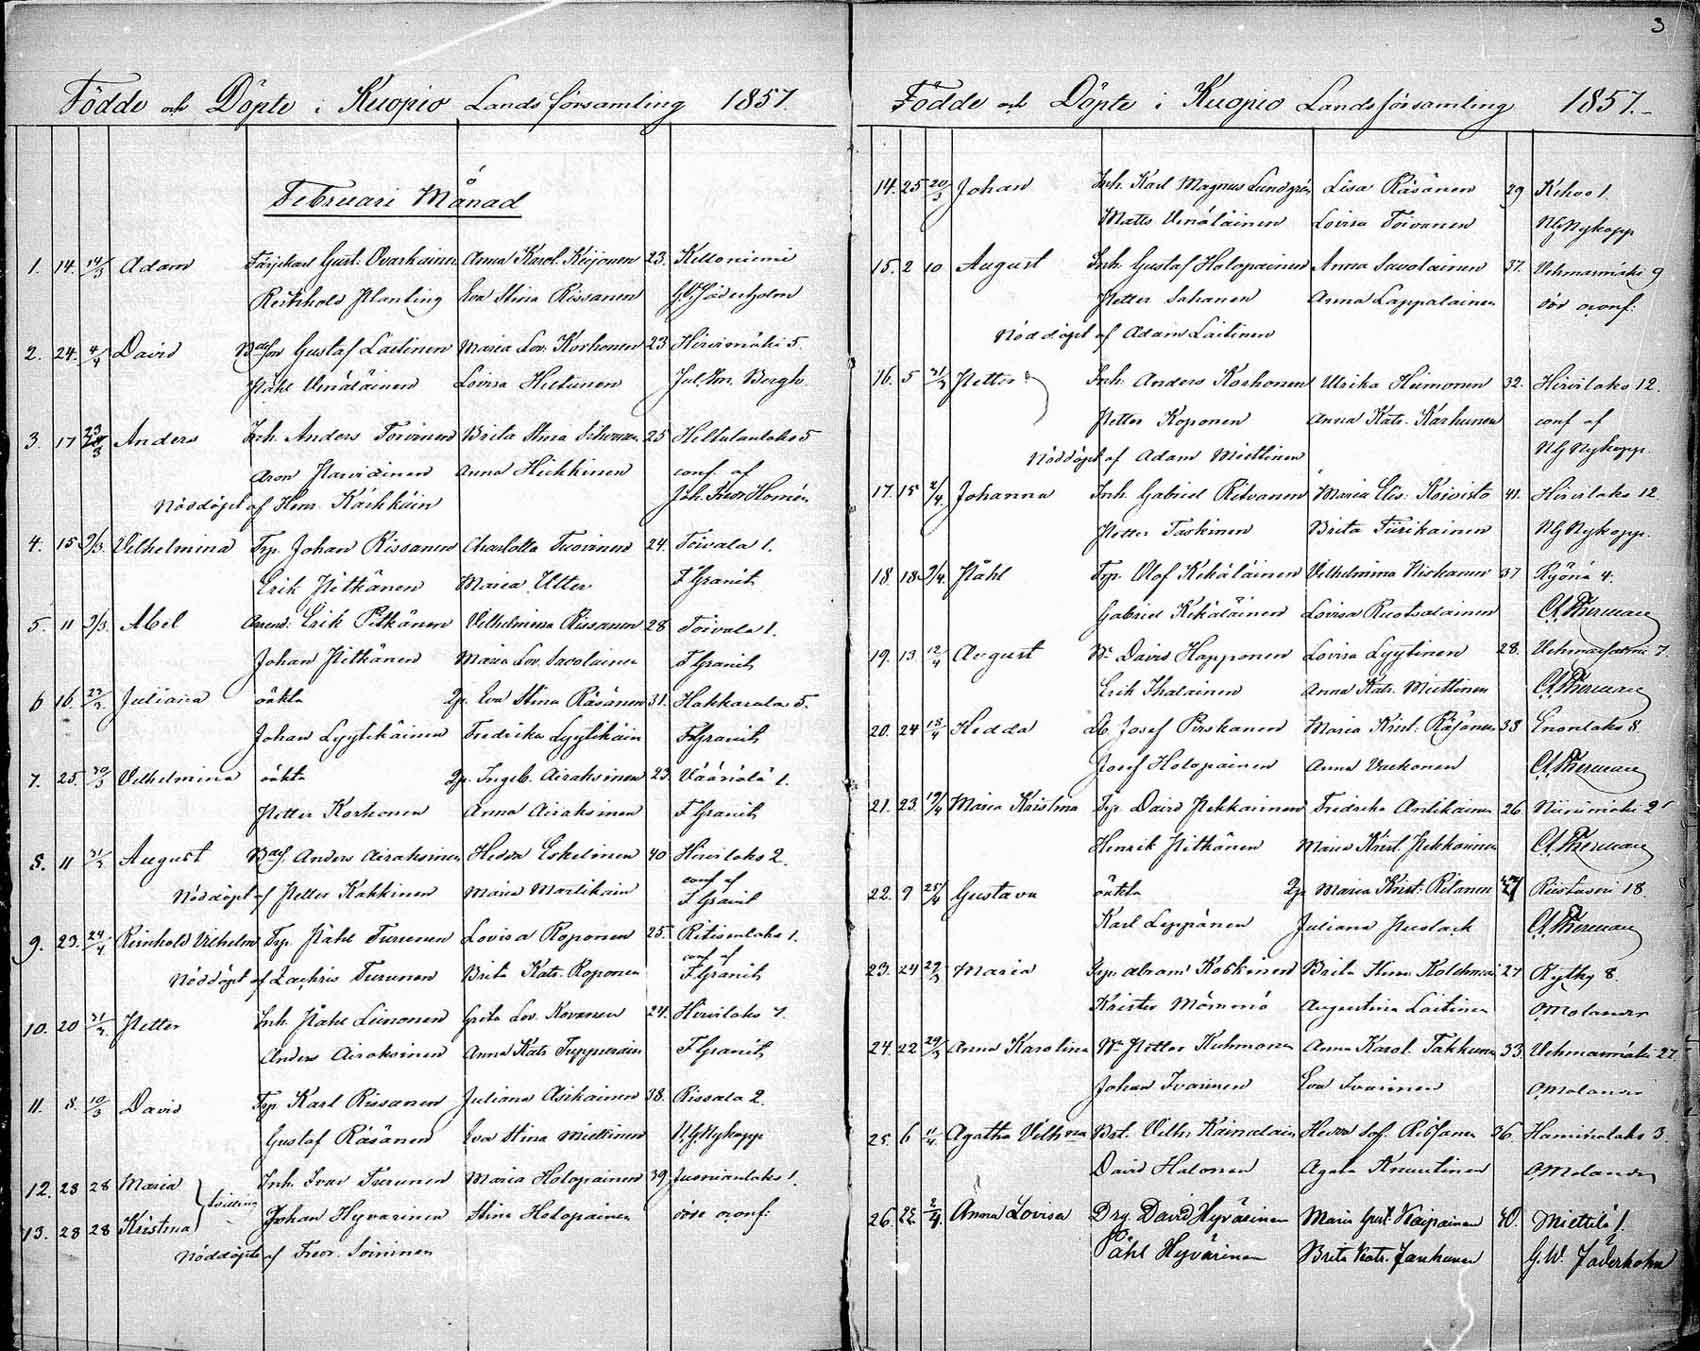 3
Födde och Döpte i Kuopio Landsförsamling 1857.
Februari Månad
1. 14. 14/3 Adam Färjekarl Gust. Ovaskainen Anna Karol. Kiiponen 23. Kelloniemi
Reinhold Planting Eva Stina Rissanen G.W. Jäderholm
2. 24. 4/4 David Gustaf Laitinen Maria Lov. Korhonen 23 Hirvimäki 5.
Påhl Lovisa Hiltunen Jul. Im. Bergh
3. 17 Anders Inh. Anders Toivanen Brita Stina 25 5
Aron Anna Heikkinen conf. af
Nöddöpt af Henr. Kärkkäin Joh. Fredr Homén
4. 15 9/3. Vilhelmina Trp. Johan Rissanen Charlotta Tuovinen 24. Toivala 1.
Erik Pitkänen Maria Utter F Granit
5. 11 9/3. Abel Erik Pitkänen Vilhelmina Rissanen 28 Toivala 1.
Johan Pitkänen Maria Lov. Savolainen F Granit
6 16. Juliana oäkta Qp. Eva Stina Räsänen 31. Hakkarala 5.
Johan Lyytikäinen Fredrika Lyytikäin F Granit
7. 25. 30/3 Vilhelmina oäkta Qp. Ingeb. Airaksinen 23. Väänälä 1.
Petter Korhonen Anna Airaksinen F Granit
8. 11 31/3 August Anders Airaksinen Hedda Eskelinen 40 Hirvilaks 2.
conf af
Nöddöpt af Petter Kakkinen Maria Martikain F Granit
9. 23. 24/4 Reinhold Vilhelm Trp. Påhl Turunen Lovisa Roponen 25. Ritisenlaks 1.
conf af
Nöddöpt af Zachris Turunen Brita Katr. Roponen F Granit
10. 20 Petter Inh. Påhl Leinonen Greta Lov. Kovanen 24. Hirvilaks 7.
Anders Airaksinen Anna Katr. F Granit
11. 8. 10/3 David Trp Karl Rissanen Juliana Asikainen 38. Rissala 2.
Gustaf Räsänen Eva Stina Miettinen N G Nykopp
12. 28 28 Maria Inh. Ivar Turunen Maria Holopainen 39 Jusvianlaks 1.
tvilling
13. 28 28 Kristina Johan Hyvärinen Stina Holopainen
Nöddöpte af Fredr. Soininen
Födde och Döpte i Kuopio Landsförsamling 1857.
14. 25 20/3 Johan Inh. Karl Magnus Lundgrén Lisa Räsänen 29 Kehvo 1.
Matts Lovisa Toivanen N G Nykopp
15. 2 10 August Inh. Gustaf Holopainen Anna Savolainen 37. Vehmasmäki 9
Petter Sahanen Anna Lappalainen
Nöddöpt af Adam Laitinen
16. 5 Petter Inh. Anders Korhonen Ulrika Heimonen 32. Hirvilaks 12.
Petter Koponen Anna Katr. Karhunen conf af
Nöddöpt af Adam Miettinen N G Nykopp
17. 15 2/4. Johanna Inh. Gabriel Ritvanen Maria Elis. Koivisto 41. Hirvilaks 12
Petter Taskinen Brita Tiirikainen N G Nykopp.
18. 18 9/4. Påhl Trp. Olof Kekäläinen Vilhelmina Niskanen 37 Ryönä 4.
Gabriel Kekäläinen Lovisa Ruotsalainen
19. 13 12/4 August David Happonen Lovisa Lyytinen 28. 7.
Erik Ihalainen Anna Katr. Miettinen
20. 24 18/4 Hedda Josef Pirskanen Maria Krist. Räsänen 38 Enonlaks 8.
Josef Holopainen Anna Vuokonen
21. 23 19/4 Maria Kristina Trp. David Pekkarinen Fredrika Antikainen 26 Niinimäki 2
Henrik Pitkänen Maria Krist. Pekkarinen
22. 9 25/4 Gustava oäkta Qp Maria Krist. Ritanen Riistavesi 18.
Karl Leppänen Juliana
23. 24 Maria Abram Koskinen Brita 27 Rytky 8.
Krister Mömmö Augustina Laitinen O Molander
24. 22 29/3 Anna Karolina Petter Kuhmonen Anna Karol. Takkunen 33. Vehmasmäki 27
Johan Ivarinen Eva Ivarinen O Molander
25. 6 11/4. Agatha Vilh:na Vilh. Kainulain Hedda Sof. 36. Haminalaks 3.
David Halonen Agata Knuutinen O Molander
26. 22. 2/4. Anna Lovisa Drg. David Hyvärinen Maria Gust. Kaipainen 40. Miettilä 1.
Påhl Hyvärinen Brita Katr. Jauhiainen G. W. Jäderholm